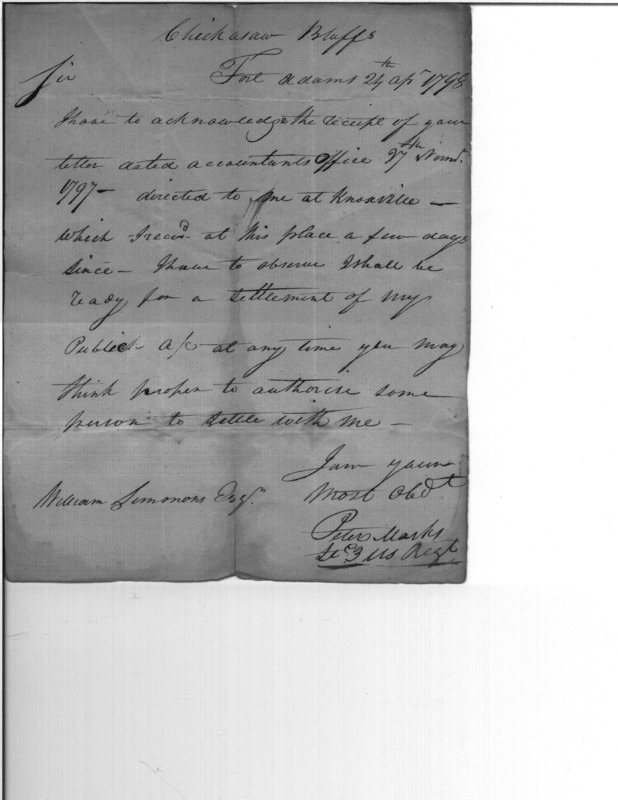 Chickasaw Bluffs
Sir Fort Adams 24th apr 1798
I have to acknowledge the receipt of your
letter dated accountants Office 27th Novmr.
1797 — directed to me at Knoxville —
which I recvd at this place a few days
since — I have to observe I shall be
ready for a settlement of my
Public a/c at any time you may
think proper to authorise some
person to settle with me —
I am your
William Simmons Esqr. most Obdt
Peter Marks
Lt 3 US Regt